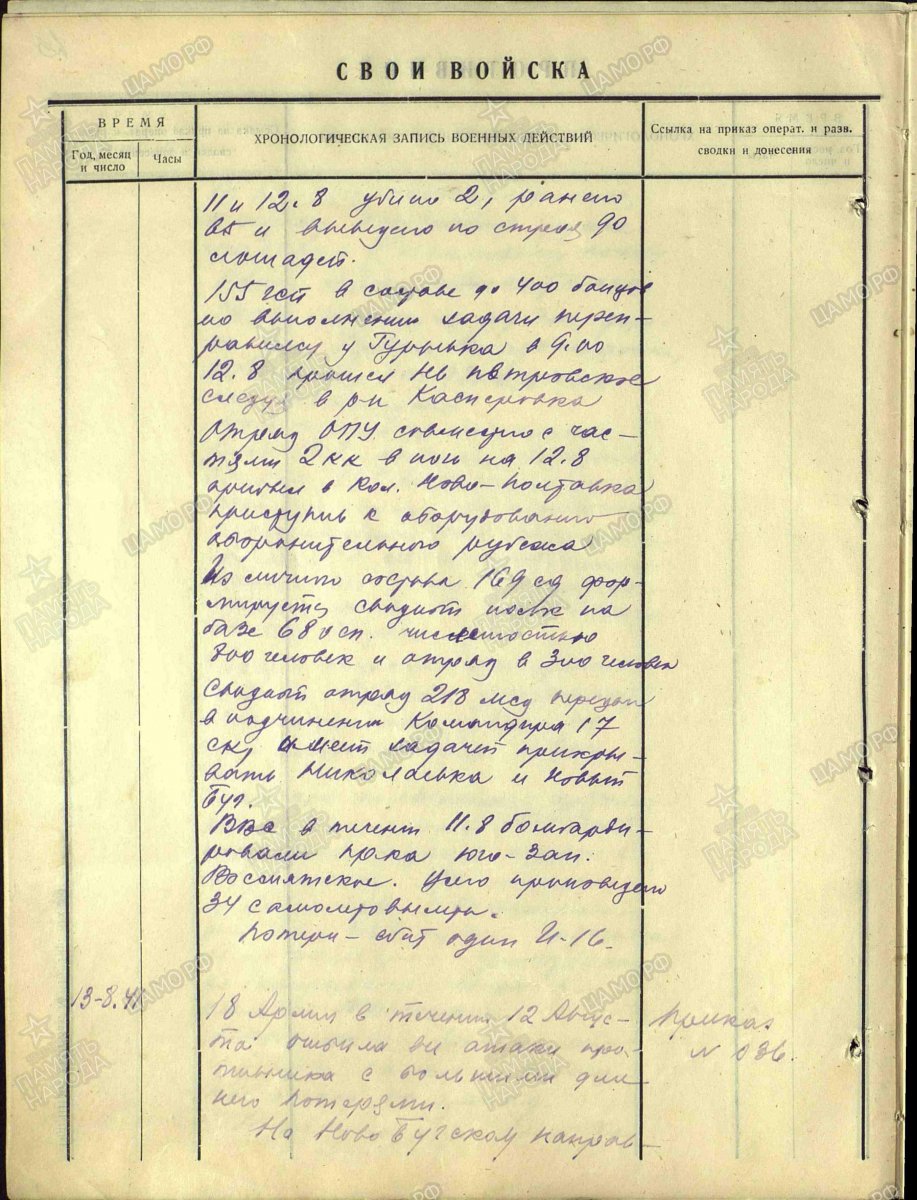 СВОИ ВОЙСКА
ВРЕМЯ
Год, месяц и число
Часы
ХРОНОЛОГИЧЕСКАЯ ЗАПИСЬ ВОЕННЫХ ДЕЙСТВИЙ
Ссылка на приказ операт. и разв. сводки и донесения
11 и 12.8 убито 2, ранено
и выведено из строя 90
лошадей.
в составе до 400 бойцов
по выполнении задачи переп-
равился у Гурьевка в 9.00
12.8 прошел Ив Петровское
следуя в р-н Касперовка
Отряд ОПУ совместно с час-
тями 2 кк в ночь на 12.8
прибыл в Кол. Ново-Полтавка
приступив к оборудованию
оборонительного рубежа
Из личного состава 169 сд фор-
мируется сводный полк на
базе 680 сп. численностью
800 человек и отряд в 300 человек
Сводный отряд 218 мсд передан
в подчинение Командира 17
ск, имеет задачей прикры-
вать Николаевка и Новый
Буг.
ВВС в течении 11.8 бомбарди-
ровали пр-ка юго-зап.
Вознесенское. Всего произведено
34 самолетовылета.
Потери – сбит один И-16.
13-8.41
18 Армия в течении 12 Авгус-
та отбила все атаки про-
тивника с большими для
него потерями.
На Ново Бугском направ-
Приказ
N 036.